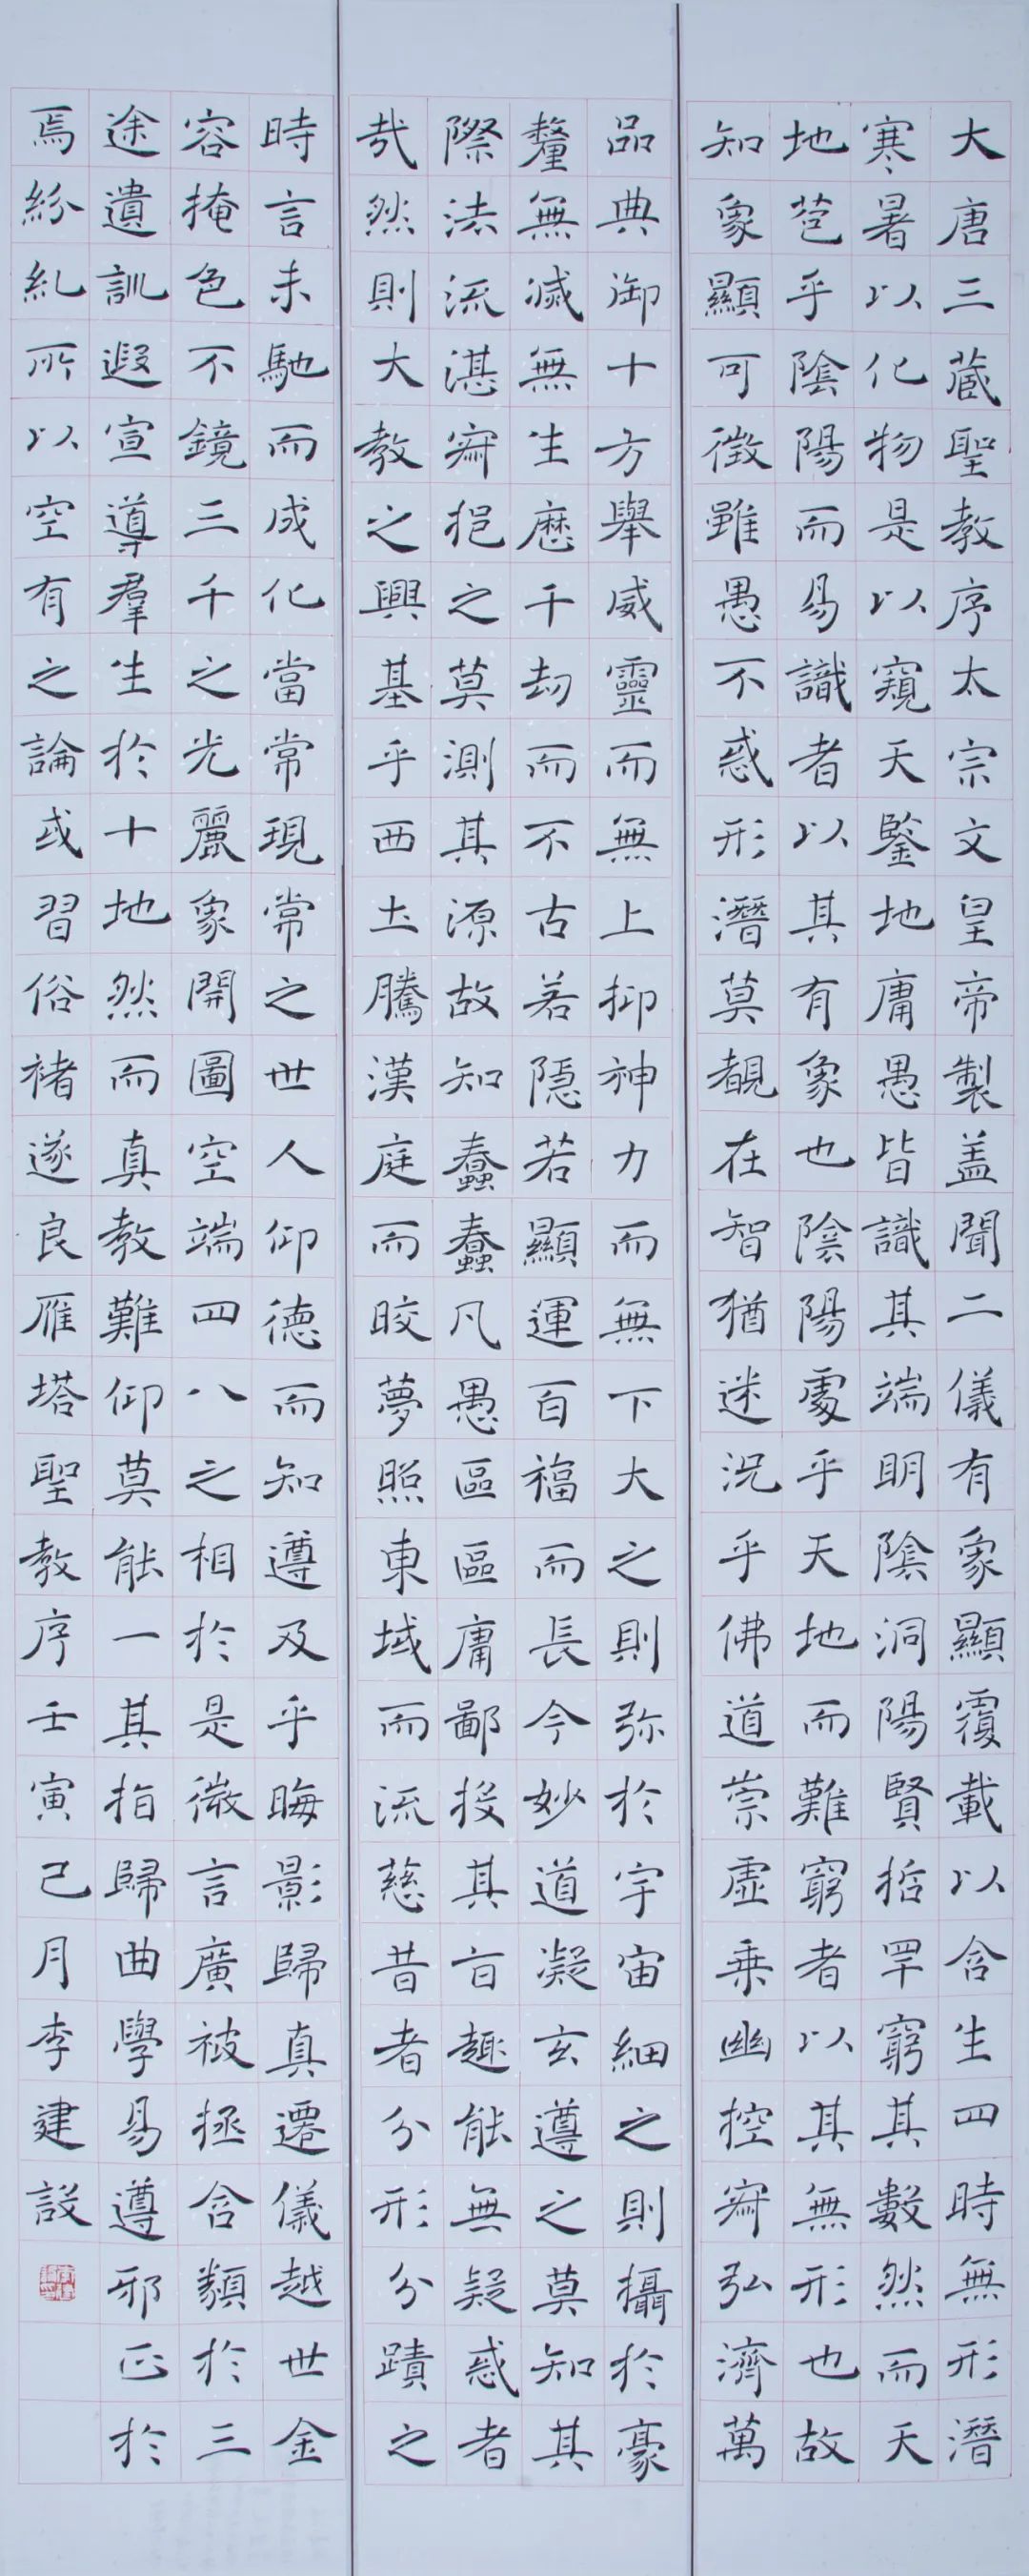 大唐三藏聖教序太宗文皇帝製盖聞二儀有象顯覆載以含生四時無形潛
寒暑以化物是以窺天鑒地庸愚皆識其端明陰洞陽賢哲罕窮其數然而天
地苞乎陰陽而易識者以其有象也陰陽處乎天地而難窮者以其無形也故
知象顯可徵雖愚不惑形潛莫覩在智猶迷況乎佛道崇虛乗幽控寂弘濟萬
品典御十方舉威靈而無上抑神力而無下大之則弥於宇宙細之則攝於豪
釐無滅無生歷千劫而不古若隱若顯運百福而長今妙道凝玄遵之莫知其
際法流湛寂挹之莫測其源故知蠢蠢凡愚區區庸鄙投其旨趣能無疑惑者
哉然則大教之興基乎西土騰漢庭而皎夢照東域而流慈昔者分形分蹟之
時言未馳而成化當常現常之世人仰德而知遵及乎晦影歸真遷儀越世金
容掩色不鏡三千之光麗象開圖空端四八之相於是微言廣被拯含類於三
途遺訓遐宣導羣生於十地然而真教難仰莫能一其指歸曲學易遵邪正於
焉紛糺所以空有之論或習俗褚遂良雁塔聖教序壬寅己月李建設